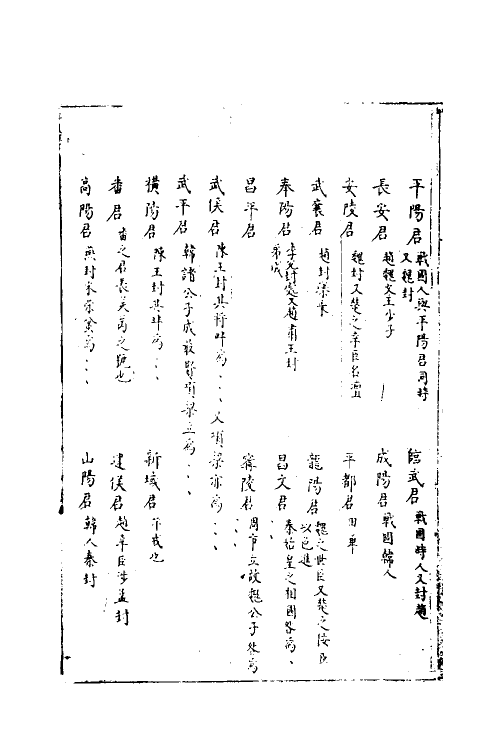 平陽君 戰國人與平陽君同時又魏封
信武君 戰國時人又封趙
長安君 趙魏文王少子
成陽君 戰國韓人
安陵君 魏封又楚之幸臣名壇
平都君 田單
武襄君 趙封樂乘
龍陽君 魏之幸臣又楚之
奉陽君 李兌封處又趙肅王封弟成
昌文君 秦始皇之相國各為、
昌平君
寧陵君 周市立故魏公子咎為、、
武侯君 陳王封其將為、、、又項梁亦為、、、
武平君 韓諸公子成最賢項梁立為、、、
橫陽君 陳王封其為、、、
新城君 芈戎也
番君 番之君長吴芮之號也
建侯君 趙幸臣涉孟封
高陽君 燕封宋榮蚠為、、、
山陽君 韓人秦封